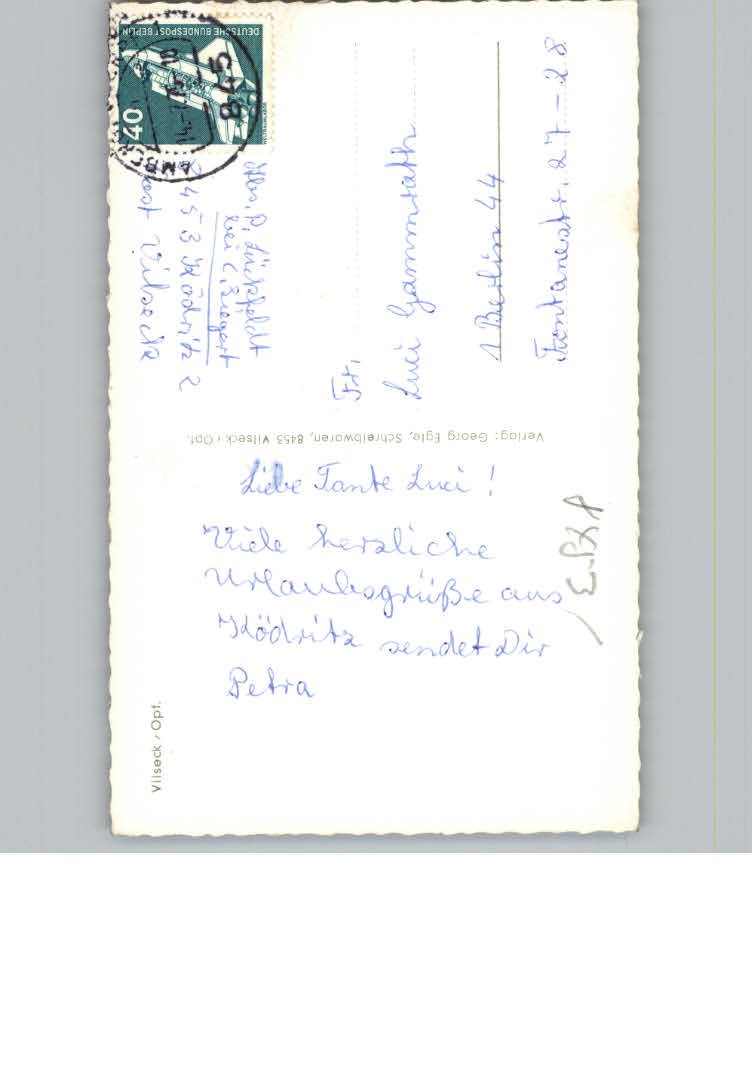 Liebe Tante Luci!
Viele herzliche
Urlaubsgrüße aus
Ködritz sendet Dir
Petra
Vilseck / Opf.
Verlag: Georg Egle, Schreibwaren, 8453 Vilseck / Opf.
DEUTSCHE BUNDESPOST BERLIN
40
845
AMBERG
Abs. P.
bei C.
8453 Ködritz 2
Post Vilseck
Fr.
Luci Gammrath
1 Berlin 44
Fontanestr. 27-28